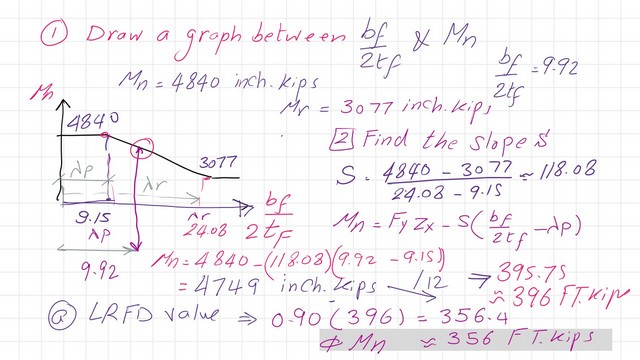 ① Draw a graph between bf/2tf & Mn
Mn = 4840 inch.kips
bf/2tf = 9.92
Mr = 3077 inch.kips
Mn
4840
3077
λp
λr
9.15
λp
λr
24.08
bf/2tF
9.92
2 Find the slope S
S = 4840 - 3077 / 24.08 - 9.15 ≈ 118.08
Mn = Fy Zx - S(bf/2tf - λp)
Mn = 4840 - (118.08)(9.92 - 9.15)
= 4749 inch.kips /12 ⇒ 395.75
≈ 396 FT.kips
ⓐ LRFD value ⇒ 0.90 (396) = 356.4
ϕ Mn ≈ 356 FT.kips